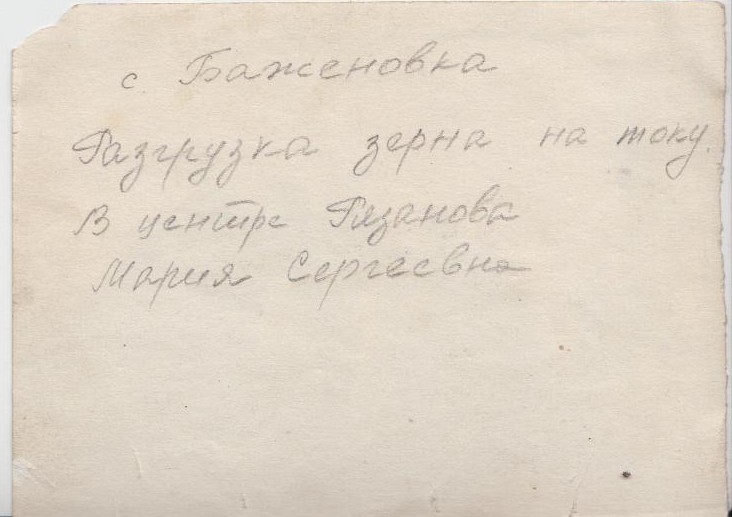 с Баженовка
Разгрузка зерна на току.
В центре Рязанова
Мария Сергеевна